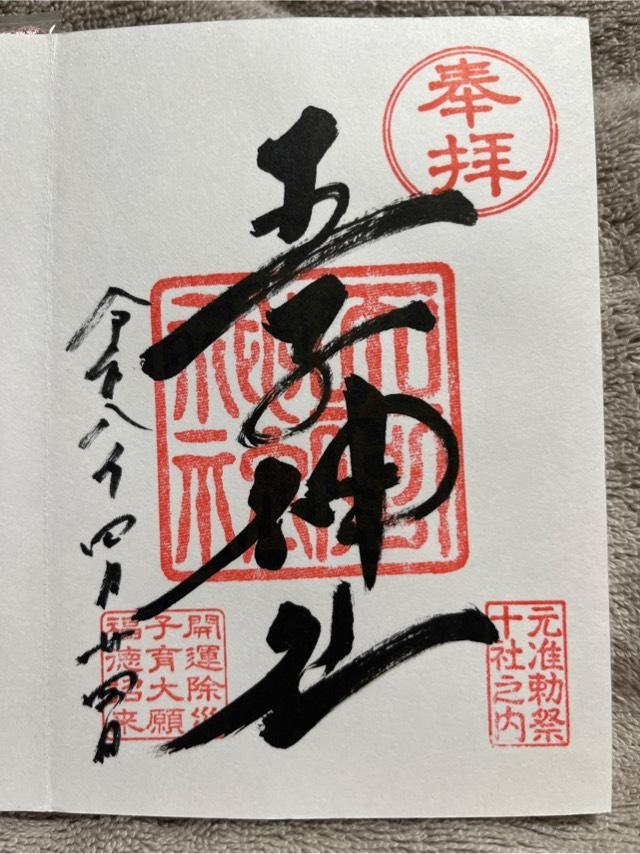 奉拝
王子神社
元准勅祭
十社之内
令和八年四月廿四日
開運除災
子育大願
福徳招来